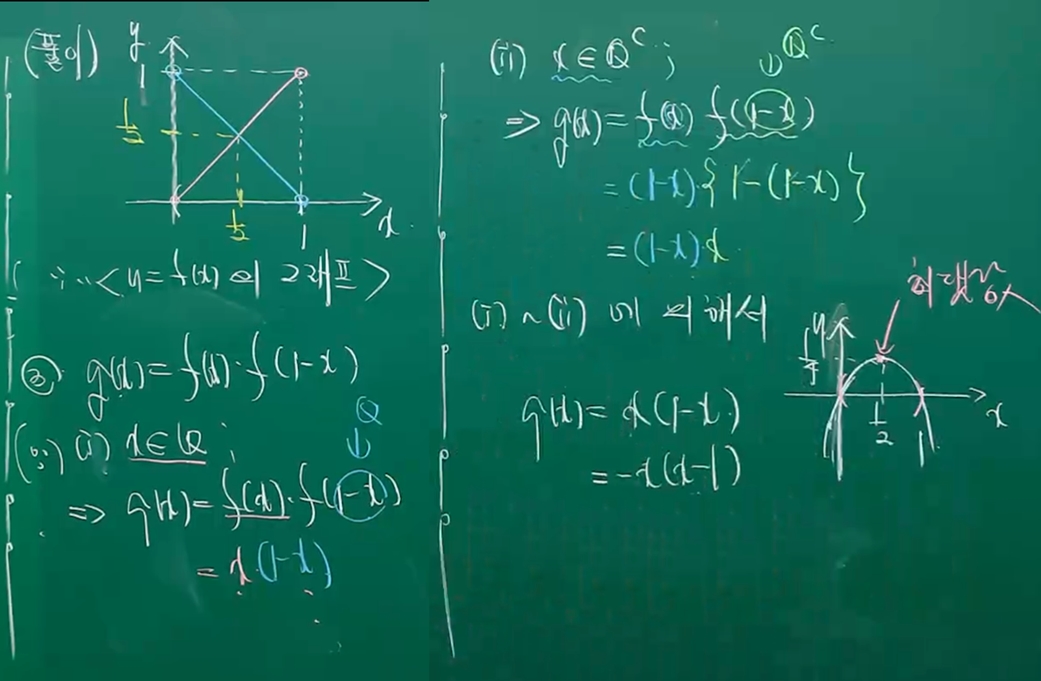 (풀이)
y
1
1/2
1/2
1
x
∵ <y = f(x)의 그래프>
② g(x) = f(x)·f(1-x)
(∵) (i) x∈Q ;
Q
↓
⇒ g(x) = f(x)·f(1-x)
= x·(1-x)
(ii) x∈Q^c ;
↓ Q^c
⇒ g(x) = f(x) f(1-x)
= (1-x)·{1-(1-x)}
= (1-x)·x
(i) ~ (ii) 에 의해서
g(x) = x(1-x)
= -x(x-1)
y
1/4
1/2
1
x